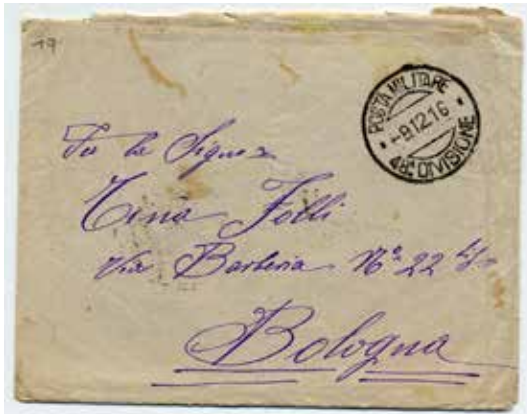 19
POSTA MILITARE
-9.12.16
48ª DIVISIONE
la Signora
Tina Folli
Via Barberia Nº 22
Bologna